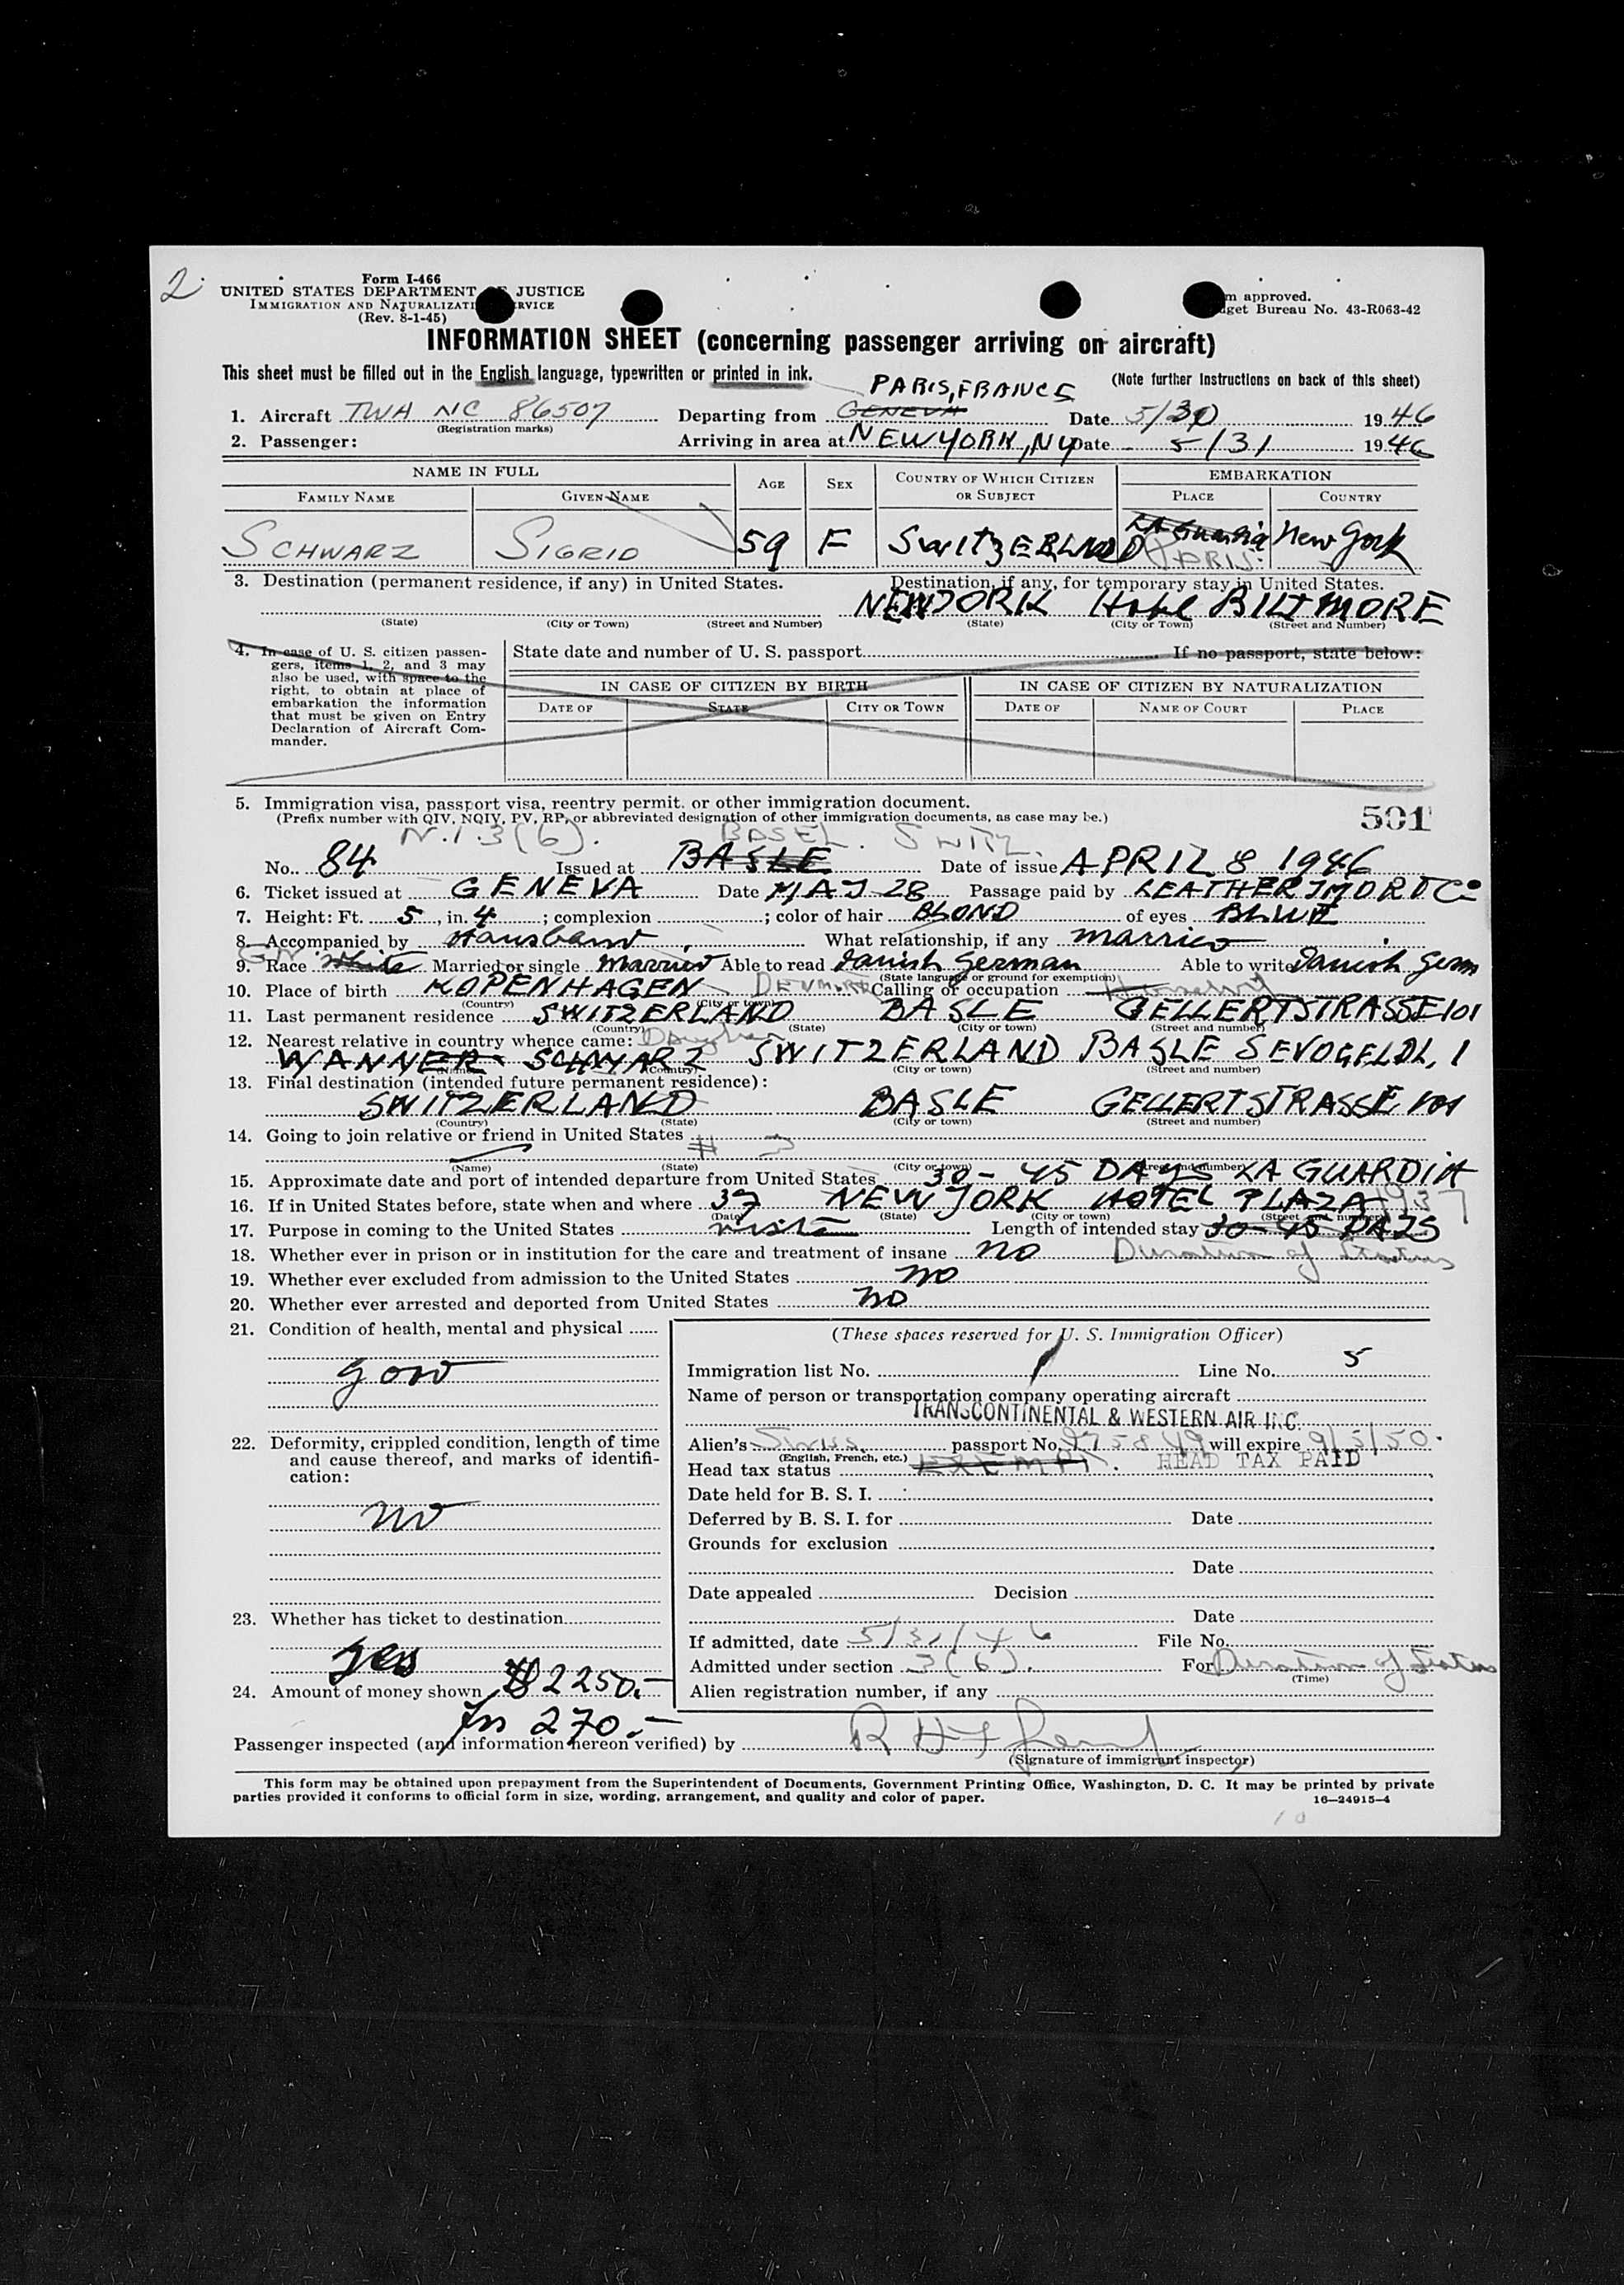 2
Form I-466
UNITED STATES DEPARTMENT OF JUSTICE
IMMIGRATION AND NATURALIZATION SERVICE
(Rev. 8-1-45)
m approved.
dget Bureau No. 43-R063-42
INFORMATION SHEET (concerning passenger arriving on aircraft)
This sheet must be filled out in the English language, typewritten or printed in ink.
(Note further instructions on back of this sheet)
PARIS, FRANCE
1. Aircraft TWA NC 86507 Departing from GENEVA Date 5/30 1946
(Registration marks)
2. Passenger: Arriving in area at NEW YORK, NY Date 5/31 1946
NAME IN FULL AGE SEX COUNTRY OF WHICH CITIZEN OR SUBJECT EMBARKATION
FAMILY NAME GIVEN NAME PLACE COUNTRY
SCHWARZ SIGRID 59 F SWITZERLAND La Guardia New York
PARIS.
3. Destination (permanent residence, if any) in United States. Destination, if any, for temporary stay in United States.
NEW YORK Hotel BILTMORE
(State) (City or Town) (Street and Number) (State) (City or Town) (Street and Number)
4. In case of U. S. citizen passengers, items 1, 2, and 3 may also be used, with space to the right, to obtain at place of embarkation the information that must be given on Entry Declaration of Aircraft Commander.
State date and number of U. S. passport If no passport, state below:
IN CASE OF CITIZEN BY BIRTH IN CASE OF CITIZEN BY NATURALIZATION
DATE OF STATE CITY OR TOWN DATE OF NAME OF COURT PLACE
5. Immigration visa, passport visa, reentry permit, or other immigration document.
(Prefix number with QIV, NQIV, PV, RP, or abbreviated designation of other immigration documents, as case may be.)
501
N.I. 3(6). BASEL. SWITZ.
No. 84 Issued at BASLE Date of issue APRIL 8 1946
6. Ticket issued at GENEVA Date MAY 28 Passage paid by
7. Height: Ft. 5, in. 4; complexion ; color of hair BLOND of eyes BLUE
8. Accompanied by Hausband What relationship, if any married
9. Race White Married or single married Able to read Danish German Able to write Danish Germ
(State language or ground for exemption)
10. Place of birth KOPENHAGEN DENMARK Calling or occupation
(Country) (City or town)
11. Last permanent residence SWITZERLAND BASLE GELLERTSTRASSE 101
(Country) (State) (City or town) (Street and number)
12. Nearest relative in country whence came: Daughter
WANNER SCHWARZ SWITZERLAND BASLE
(Name) (Country) (City or town) (Street and number)
13. Final destination (intended future permanent residence):
SWITZERLAND BASLE GELLERTSTRASSE 101
(Country) (State) (City or town) (Street and number)
14. Going to join relative or friend in United States # 3
(Name) (State) (City or town) (Street and number)
15. Approximate date and port of intended departure from United States 30 - 45 DAYS LA GUARDIA
16. If in United States before, state when and where 37 NEW YORK HOTEL PLAZA 1937
(Date) (State) (City or town) (Street and number)
17. Purpose in coming to the United States visite Length of intended stay 30 45 DAYS
18. Whether ever in prison or in institution for the care and treatment of insane NO Duration of Status
19. Whether ever excluded from admission to the United States NO
20. Whether ever arrested and deported from United States NO
21. Condition of health, mental and physical
good
22. Deformity, crippled condition, length of time and cause thereof, and marks of identification:
no
23. Whether has ticket to destination
yes
24. Amount of money shown $ 2250.-
270.-
(These spaces reserved for U. S. Immigration Officer)
Immigration list No. 1 Line No. 5
Name of person or transportation company operating aircraft
TRANSCONTINENTAL & WESTERN AIR INC.
Alien's Swiss passport No. 975849 will expire 9/3/50.
(English, French, etc.)
Head tax status EXEMPT. HEAD TAX PAID
Date held for B. S. I.
Deferred by B. S. I. for Date
Grounds for exclusion
Date
Date appealed Decision
Date
If admitted, date 5/31/46 File No.
Admitted under section 3(6). For Duration of Status
(Time)
Alien registration number, if any
Passenger inspected (and information hereon verified) by
(Signature of immigrant inspector)
This form may be obtained upon prepayment from the Superintendent of Documents, Government Printing Office, Washington, D. C. It may be printed by private
parties provided it conforms to official form in size, wording, arrangement, and quality and color of paper. 16—24915-4
10